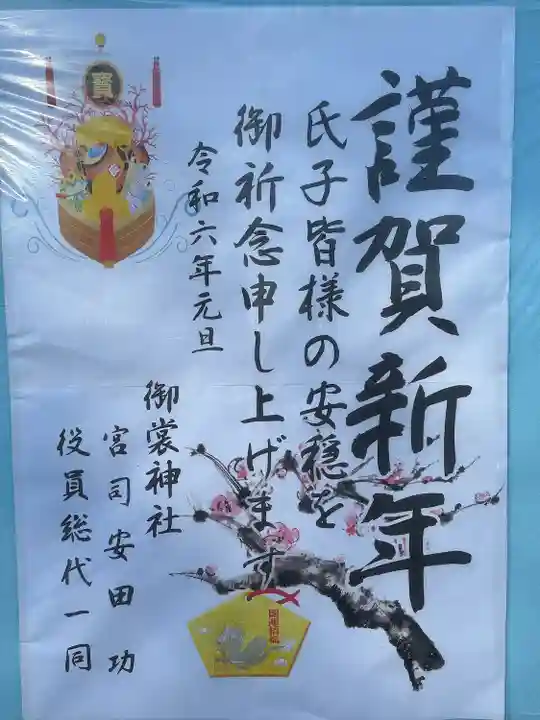 謹賀新年
氏子皆様の安穏を
御祈念申し上げます
令和六年元旦
御裳神社
宮司安田功
役員総代一同
寳
開運招福